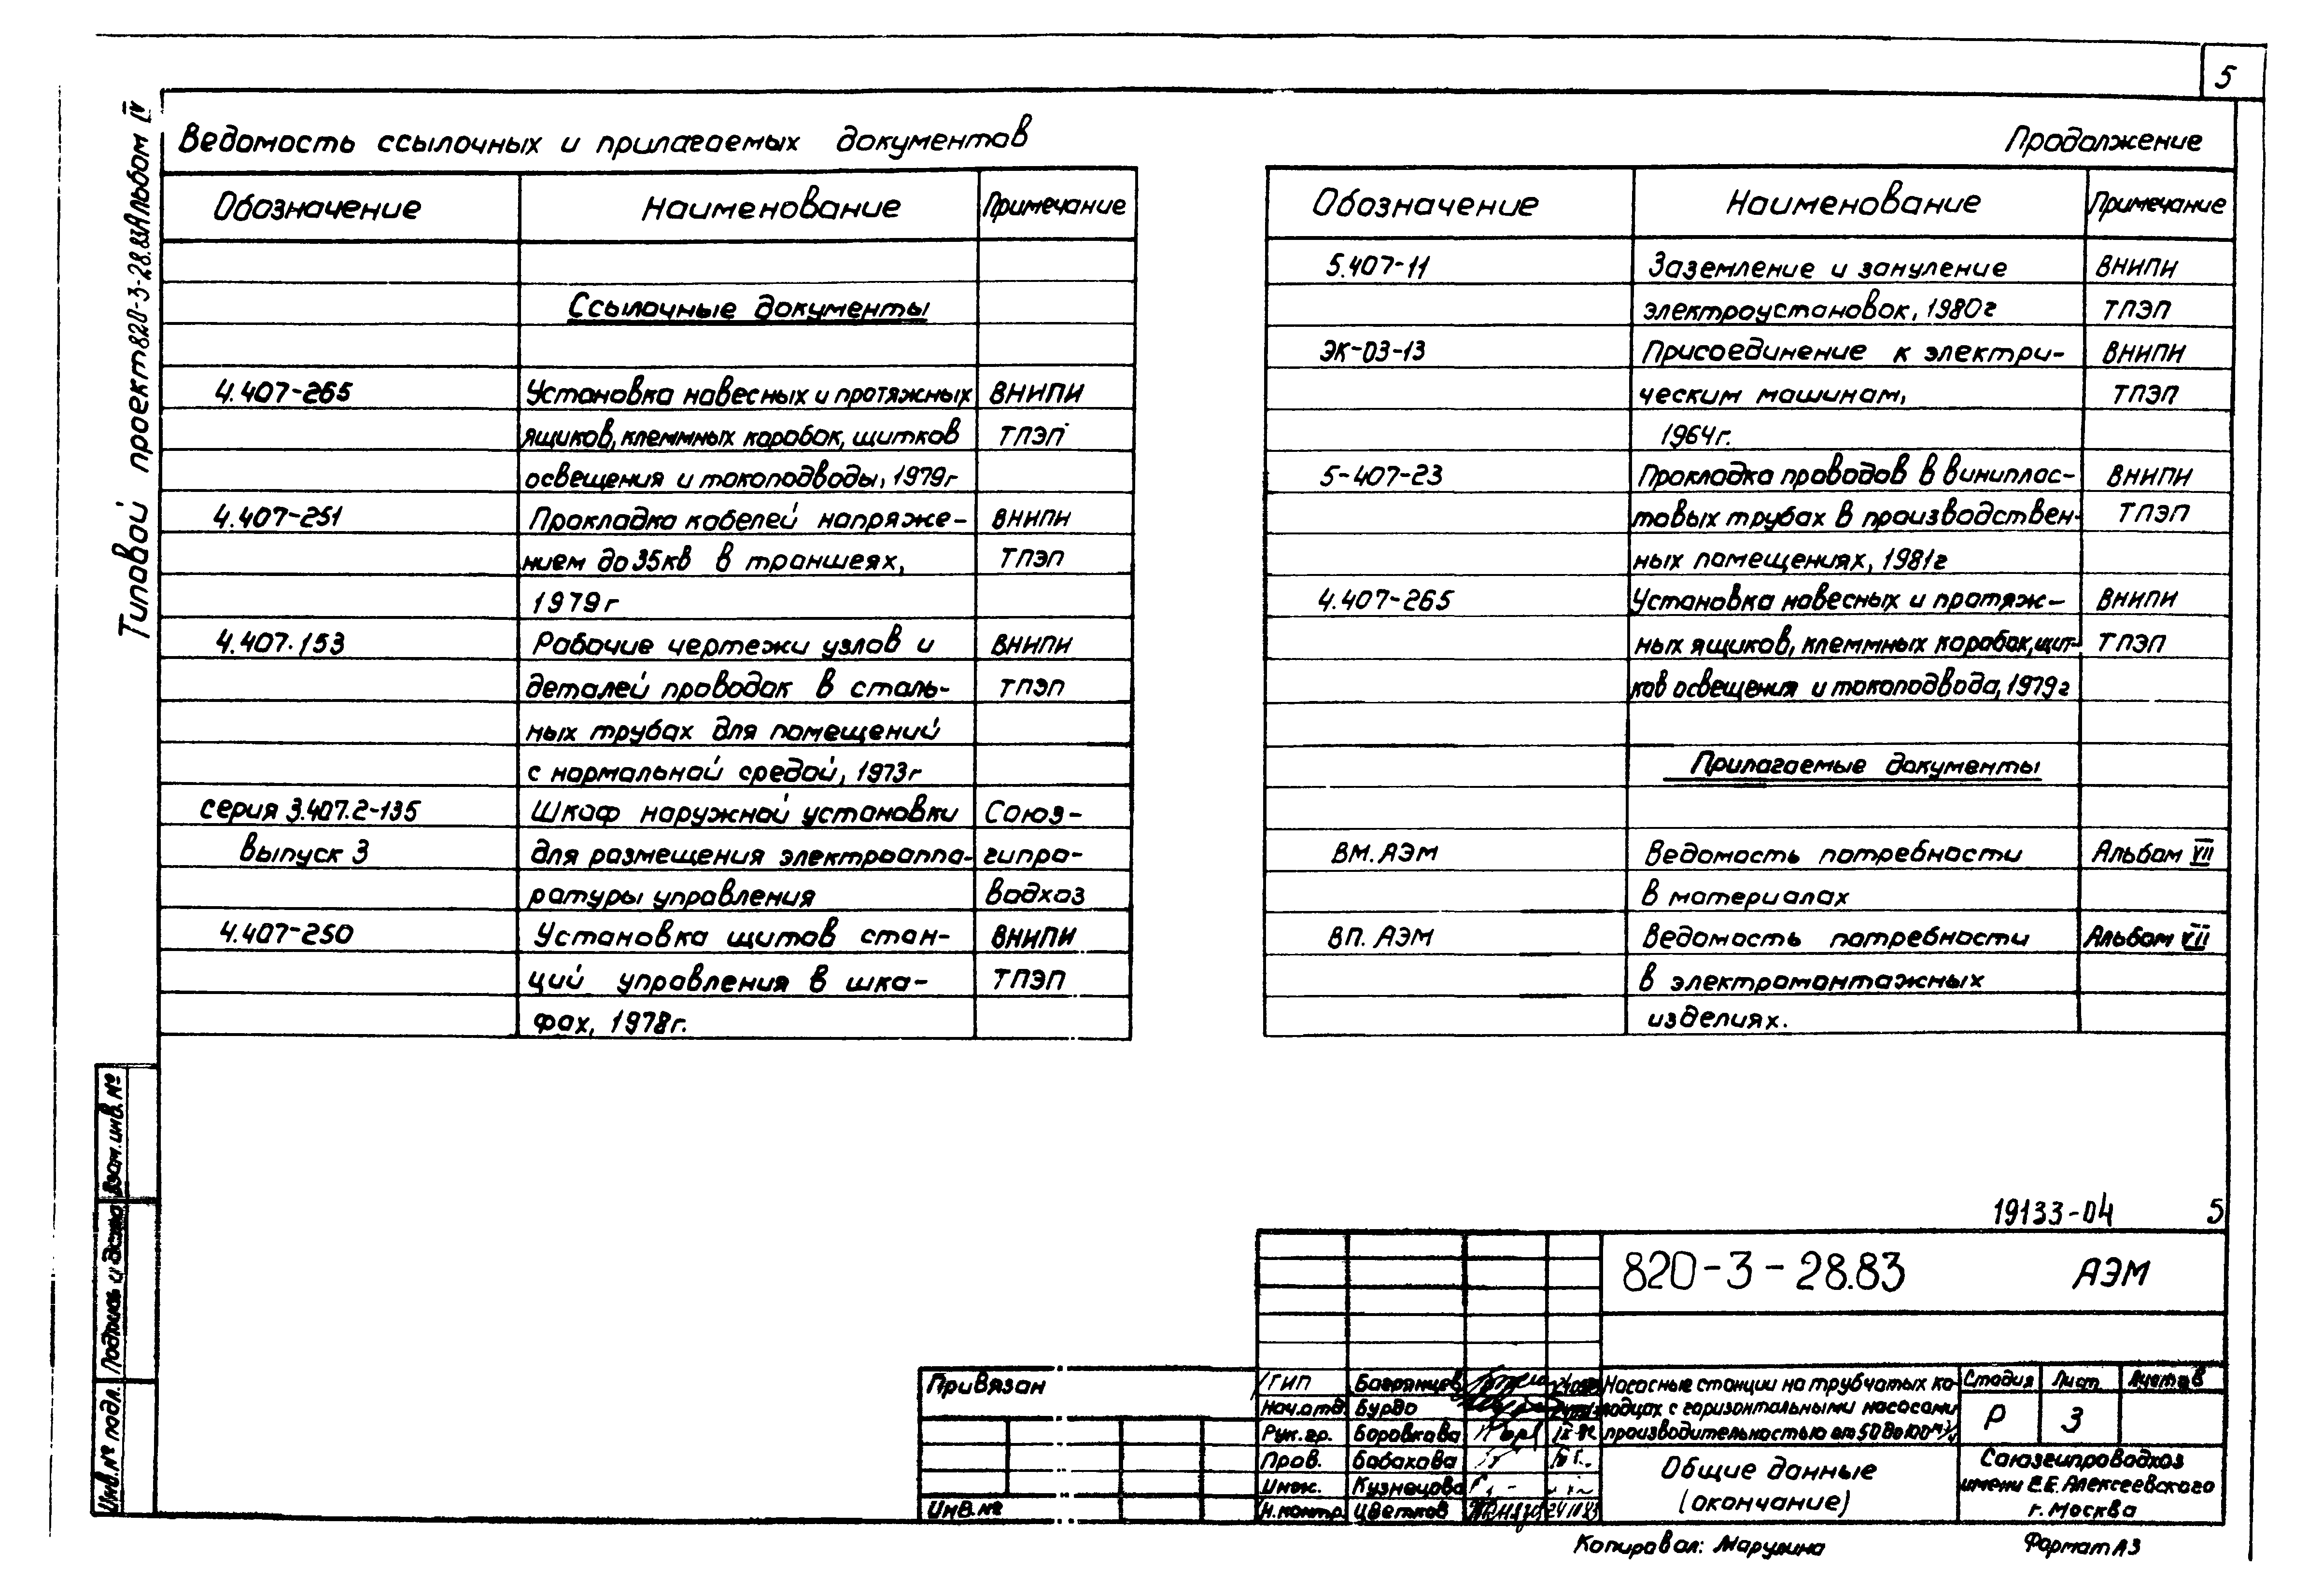 5
Типовой проект 820-3-28.83 Альбом IV
Ведомость ссылочных и прилагаемых документов
Обозначение Наименование Примечание
Ссылочные документы
4.407-265 Установка навесных и протяжных ВНИПИ
ящиков, клеммных коробок, щитков ТПЭП
освещения и токоподводы, 1979г
4.407-251 Прокладка кабелей напряже- ВНИПИ
нием до 35кв в траншеях, ТПЭП
1979г
4.407.153 Рабочие чертежи узлов и ВНИПИ
деталей проводок в сталь- ТПЭП
ных трубах для помещений
с нормальной средой, 1973г
серия 3.407.2-135 Шкаф наружной установки Союз-
выпуск 3 для размещения электроаппа- гипро-
ратуры управления водхоз
4.407-250 Установка щитов стан- ВНИПИ
ций управления в шка- ТПЭП
фах, 1978г.
Продолжение
Обозначение Наименование Примечание
5.407-11 Заземление и зануление ВНИПИ
электроустановок, 1980г ТПЭП
ЭК-03-13 Присоединение к электри- ВНИПИ
ческим машинам, ТПЭП
1964г.
5-407-23 Прокладка проводов в виниплас- ВНИПИ
товых трубах в производствен- ТПЭП
ных помещениях, 1981г
4.407-265 Установка навесных и протяж- ВНИПИ
ных ящиков, клеммных коробок, щит- ТПЭП
ков освещения и токоподвода, 1979г
Прилагаемые документы
ВМ. АЭМ Ведомость потребности Альбом VII
в материалах
ВП. АЭМ Ведомость потребности Альбом VII
в электромонтажных
изделиях.
Взам. инв. №
Подпись и дата
Инв. № подл.
19133-04 5
820-3-28.83 АЭМ
Привязан
Инв. №
ГИП Багрянцев
Нач. отд. Бурдо
Рук. гр. Боровкова
Пров. Бабахова
Инж. Кузнецова
Н. контр. Цветков
Насосные станции на трубчатых ко-
лодцах с горизонтальными насосами
производительностью от 50 до 100 м³/ч
Стадия Лист Листов
Р 3
Общие данные
(окончание)
Союзгипроводхоз
имени Е.Е. Алексеевского
г. Москва
Копировал: Марулина
Формат А3